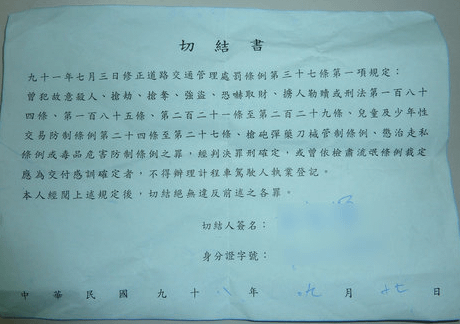 切結書
九十一年七月三日修正道路交通管理處罰條例第三十七條第一項規定：
曾犯故意殺人、搶劫、搶奪、強盜、恐嚇取財、擄人勒贖或刑法第一百八十
四條、第一百八十五條、第二百二十一條至第二百二十九條、兒童及少年性
交易防制條例第二十四條至第二十七條、槍砲彈藥刀械管制條例、懲治走私
條例或毒品危害防制條例之罪，經判決罪刑確定，或曾依檢肅流氓條例裁定
應為交付感訓確定者，不得辦理計程車駕駛人執業登記。
本人經閱上述規定後，切結絕無違反前述之各罪。
切結人簽名：
身分證字號：
中華民國九十八年九月十七日